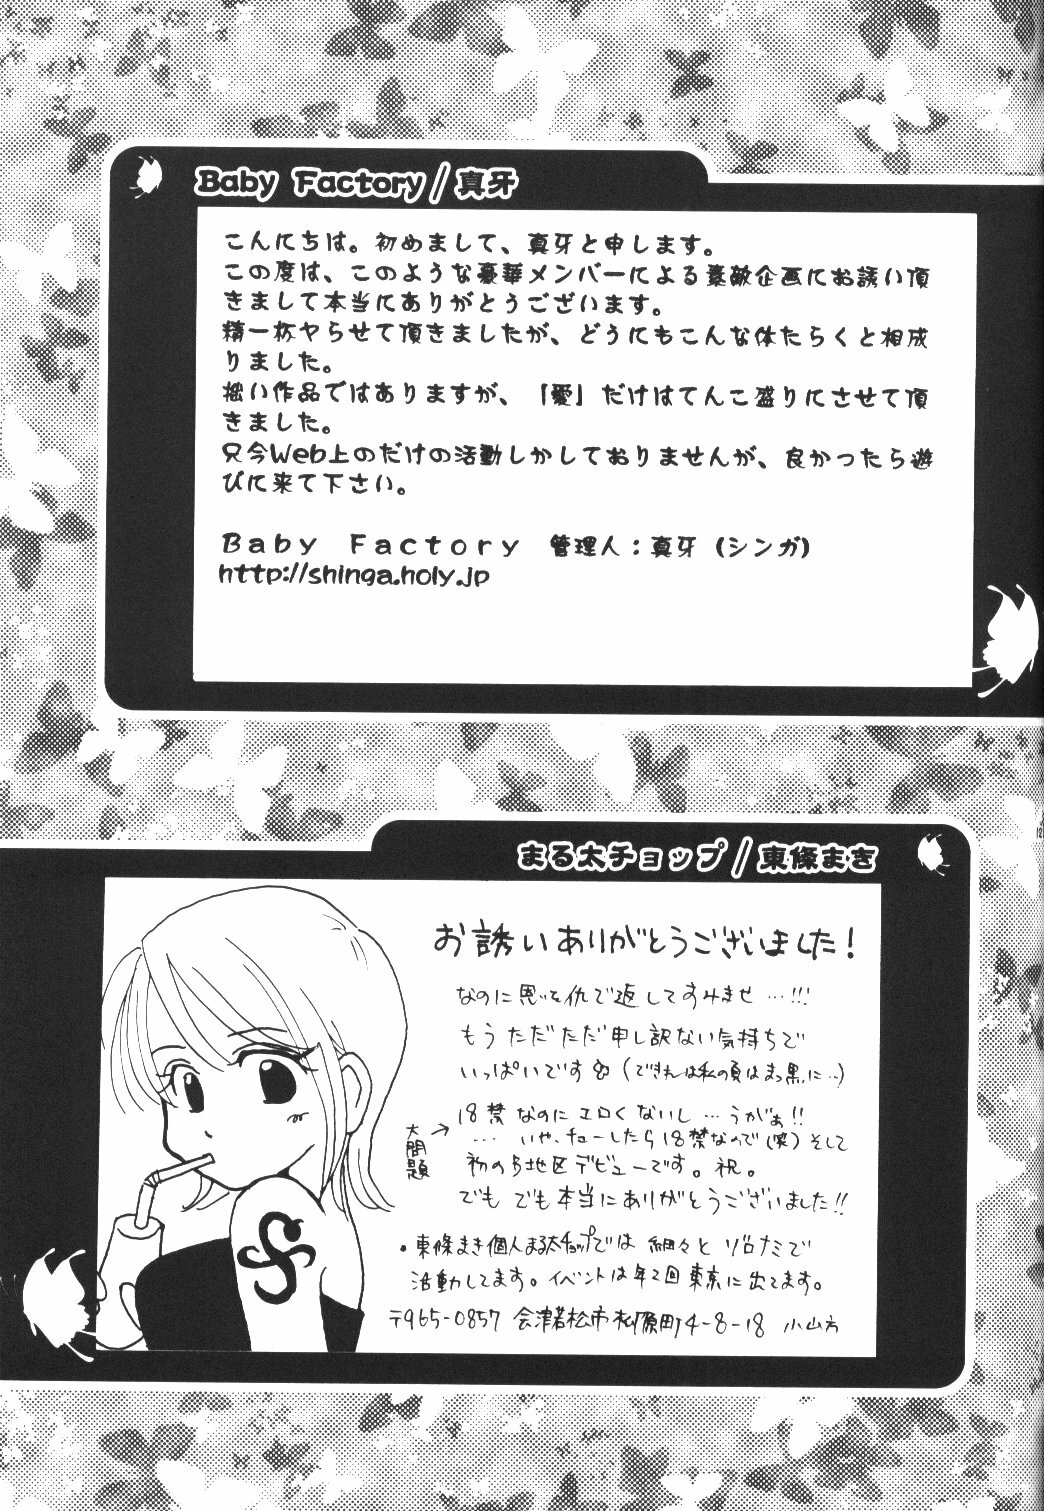 Baby Factory/真牙
こんにちは。初めまして、真牙と申します。
この度は、このような豪華メンバーによる素敵企画にお誘い頂
きまして本当にありがとうございます。
精一杯ヤらせて頂きましたが、どうにもこんな体たらくと相成
りました。
拙い作品ではありますが、「愛」だけはてんこ盛りにさせて頂
きました。
只今Web上のだけの活動しかしておりませんが、良かったら遊
びに来て下さい。
Ｂａｂｙ　Ｆａｃｔｏｒｙ　管理人：真牙（シンガ）
http://shinga.holy.jp
まる太チョップ/東條まき
お誘いありがとうございました!
なのに恩を仇で返してすみませ…!!!
もうただただ申し訳ない気持ちで
いっぱいです (できれば私の頁はまっ黒に…)
大問題→
18禁なのにエロくないし…うがぁ!!
…いや、チューしたら18禁なので(笑)そして
初の地区デビューです。祝。
でもでも本当にありがとうございました!!
・東條まき個人まる太チョップでは細々とゾロナミで
活動してます。イベントは年2回東京に出てます。
〒965-0857 会津若松市 町4-8-18 小山方